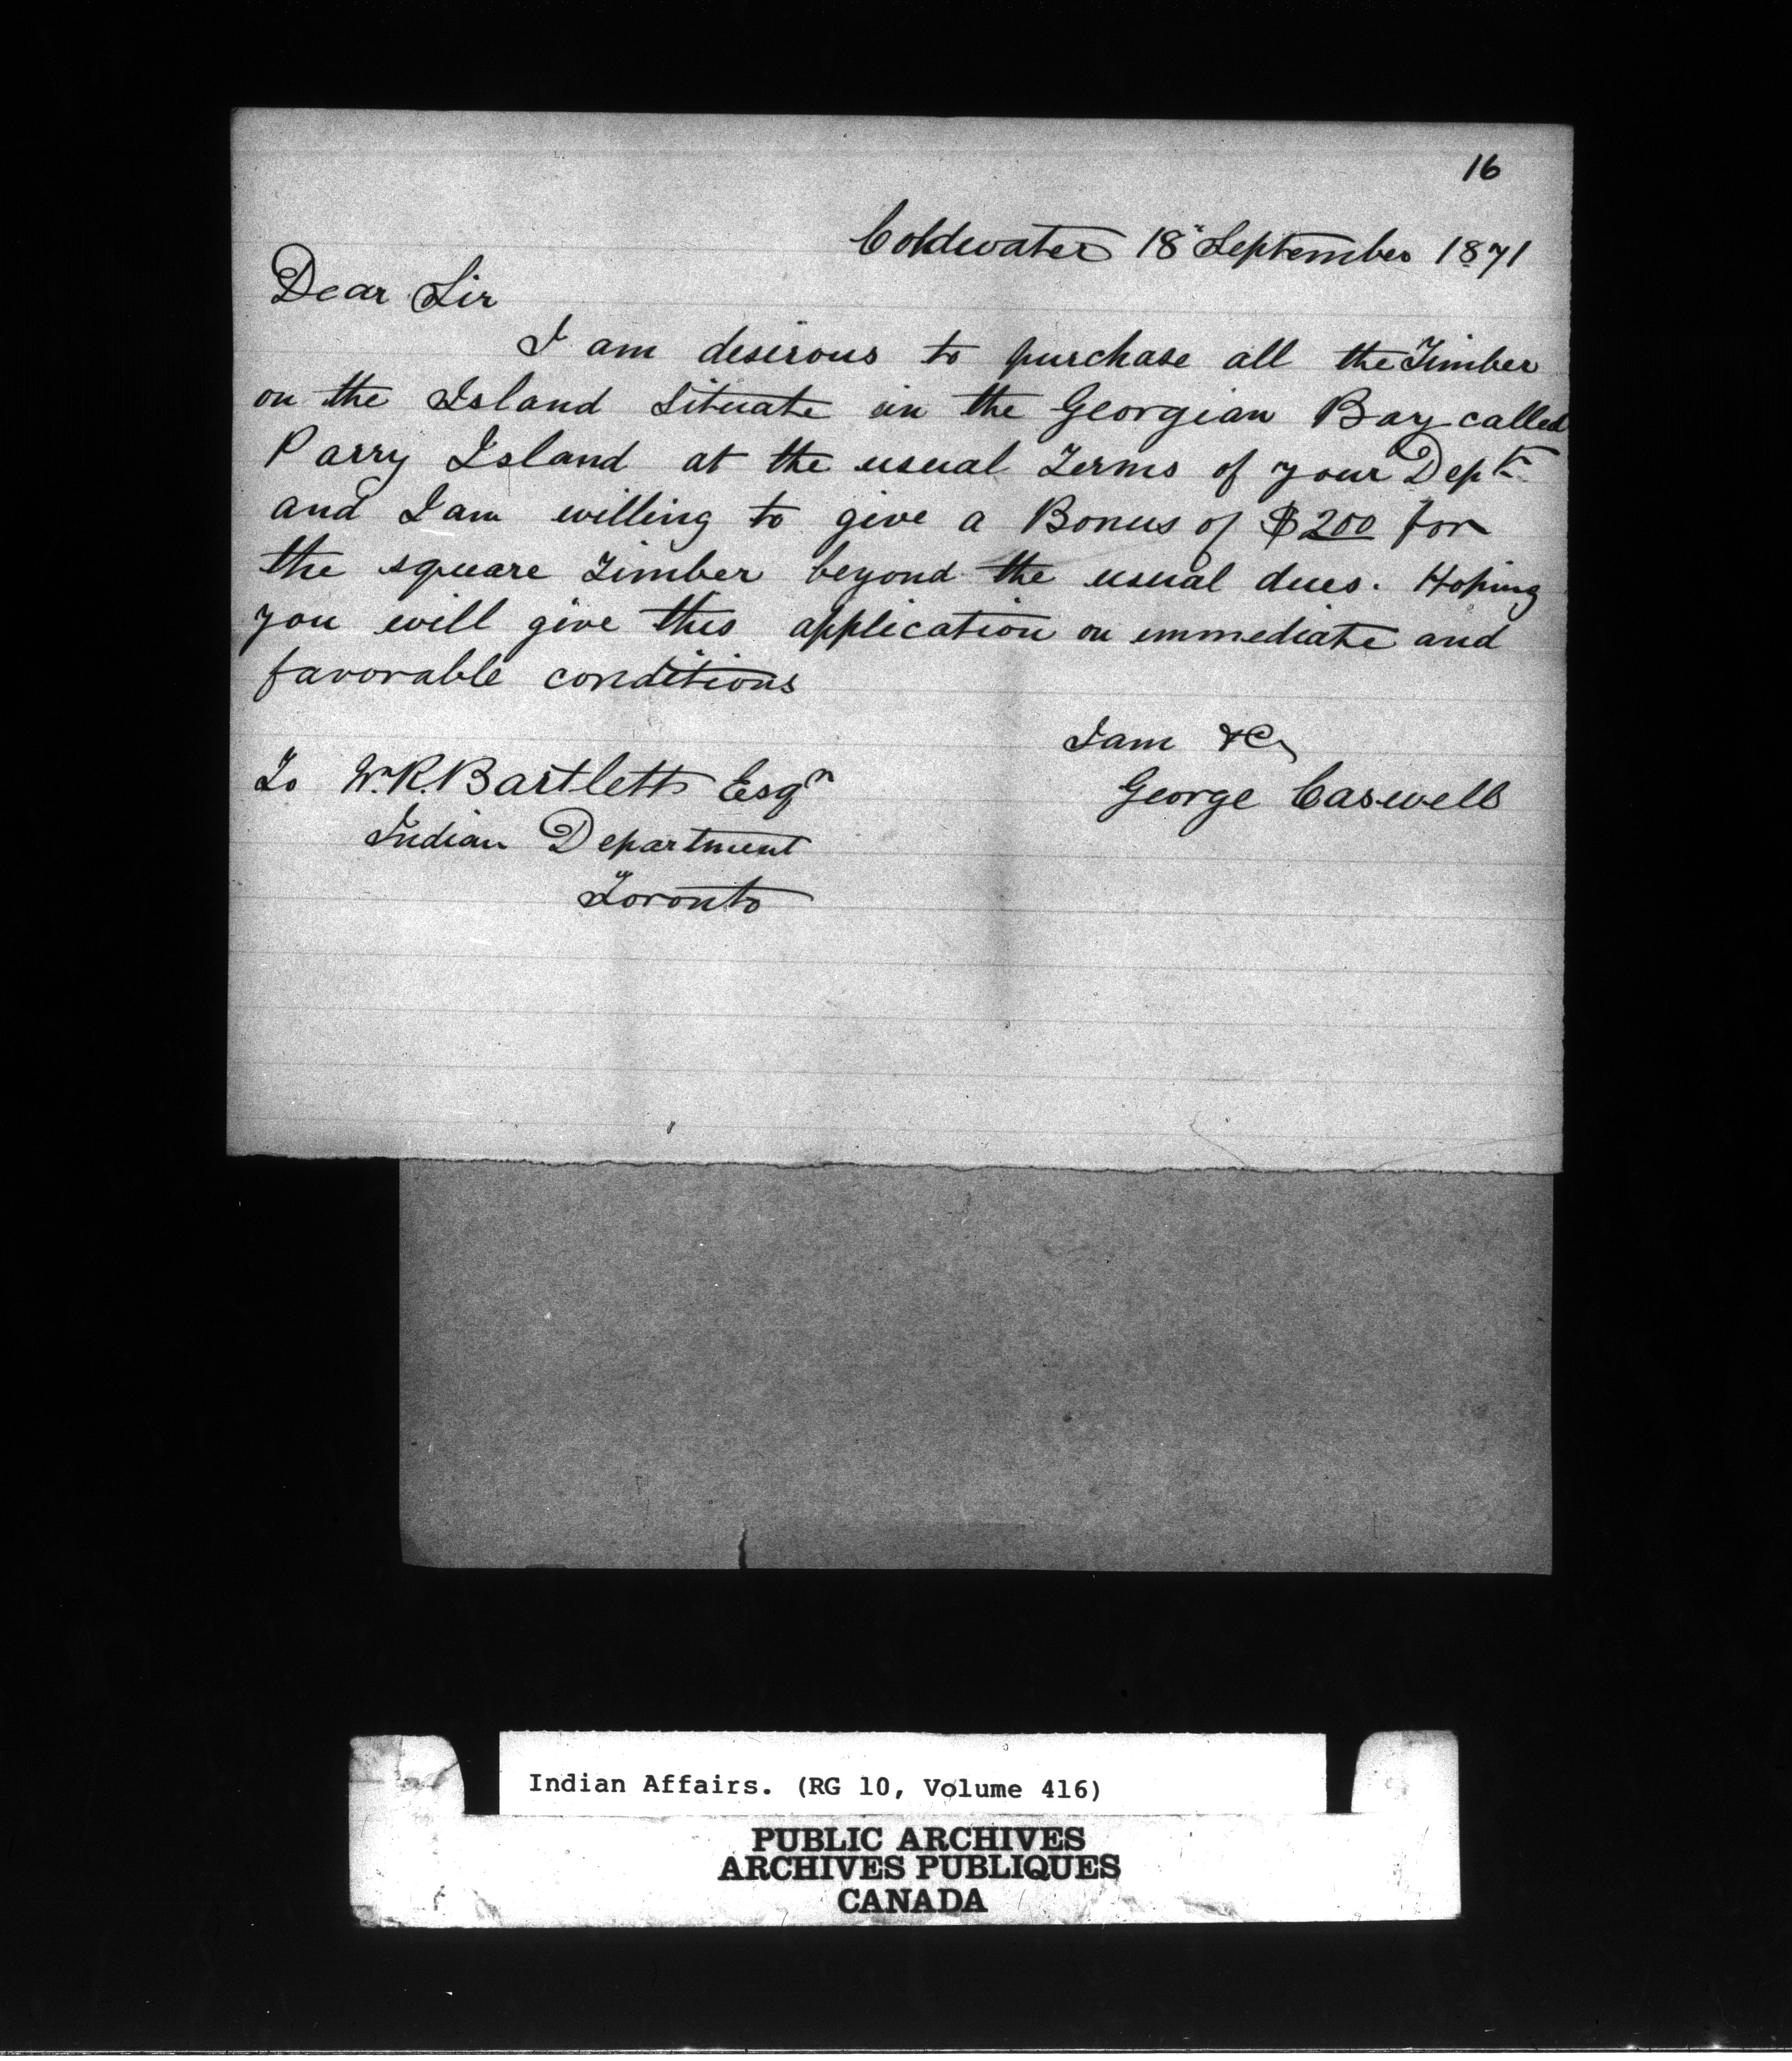 16
Coldwater 18" September 1871
Dear Sir
I am desirous to purchase all the Timber
on the Island Situate in the Georgian Bay called
Parry Island at the usual Terms of your Dept
and I am willing to give a Bonus of $200 for
the square Timber beyond the usual dues. Hoping
you will give this application on immediate and
favorable conditions
I am &c
George Caswell
To W.R. Bartlett Esqr
Indian Department
Toronto
Indian Affairs. (RG 10, Volume 416)
PUBLIC ARCHIVES
ARCHIVES PUBLIQUES
CANADA